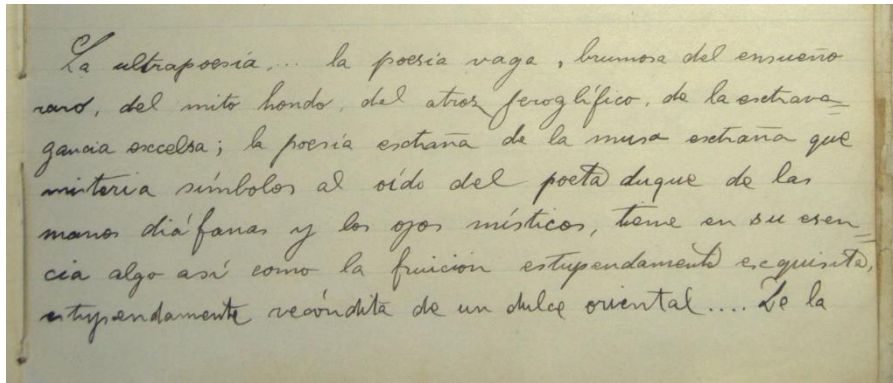 La ultrapoesía... la poesía vaga, brumosa del ensueño
raro, del mito hondo, del atroz jeroglífico, de la esctrava=
gancia escelsa; la poesía esctraña de la musa esctraña que
misteria símbolos al oído del poeta duque de las
manos diáfanas y los ojos místicos, tiene en su esen=
cia algo así como la fruicion estupendamente escquisita,
estupendamente recóndita de un dulce oriental.... De la